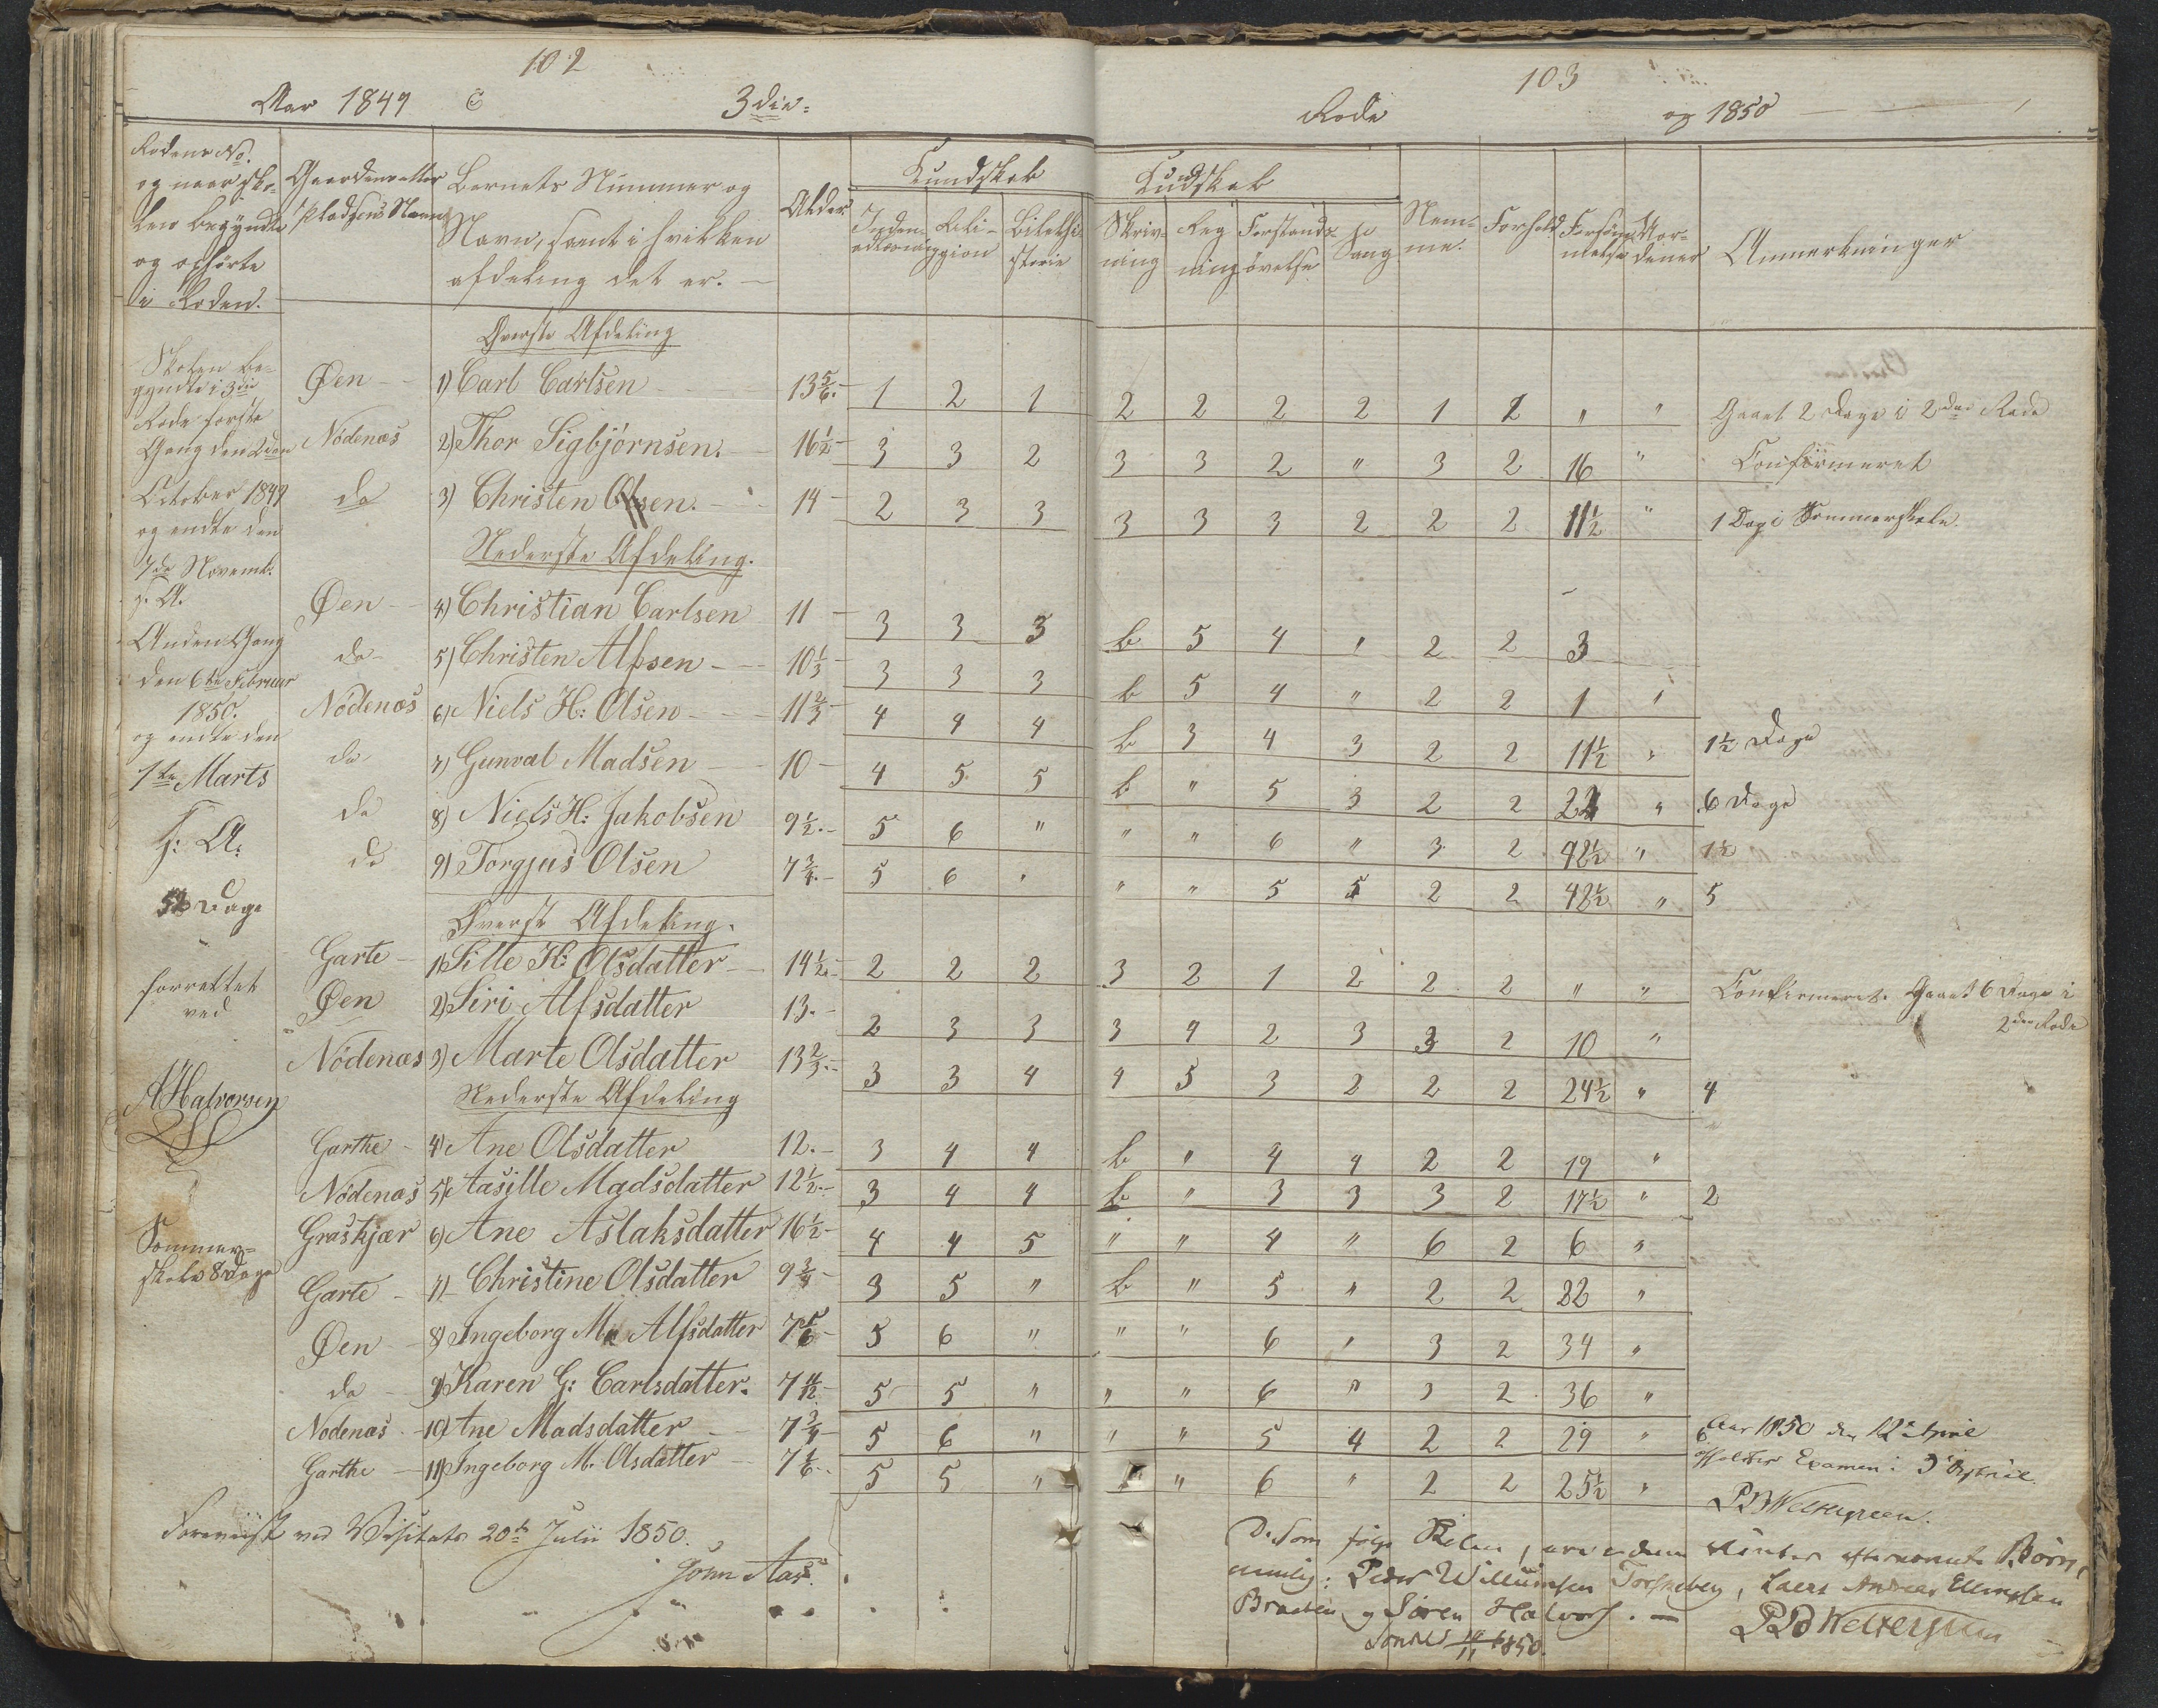 102
Aar 1849 3die
Rodens No.
og naar Sko-
len begyndte
og ophørte
i Roden.
Gaardens eller
Pladsens Navn
Barnets Nummer og
Navn, samt i hvilken
afdeling det er.
Alder
Kundskab
Inden-
adlæsning
Reli-
gion
Bibelhi-
storie
Øverste Afdeling
Øen 1) Carl Carlsen 13 5/6 1 2 1
Nødenæs 2) Thor Sigbjørnsen. 16 1/2 3 3 2
do 3) Christen Olsen. 14 2 3 3
Nederste Afdeling.
Øen 4) Christian Carlsen 11 3 3 3
do 5) Christen Alfsen 10 1/3 3 3 3
Nødenæs 6) Niels H: Olsen 11 2/3 4 4 4
do 7) Gunval Madsen 10 4 5 5
do 8) Niels H: Jakobsen 9 1/2 5 6 "
do 9) Torgjus Olsen 7 3/4 5 6 "
Øverste Afdeling.
Garte 1) Sille K: Olsdatter 14 1/2 2 2 2
Øen 2) Siri Alfsdatter 13. 2 3 3
Nødenæs 3) Marte Olsdatter 13 2/3 3 3 4
Nederste Afdeling
Garthe 4) Ane Olsdatter 12. 3 4 4
Nødenæs 5) Aasille Madsdatter 12 1/2 3 4 4
Graskjær 6) Ane Aslaksdatter 16 1/2 4 4 5
Garte 7) Christine Olsdatter 9 3/4 3 5 "
Øen 8) Ingeborg M. Alfsdatter 7 5/6 5 6 "
do 9) Karen G: Carlsdatter. 7 5 5 "
Nødenæs 10) Ane Madsdatter 7 3/4 5 6 "
Garthe 11) Ingeborg M. Olsdatter 7 1/6 5 5 "
Skolen be-
gyndte i 3die
Rode første
Gang den 2den
October 1849
og endte den
7de Novemb.
s. A.
Anden Gang
den 6te Februar
1850.
og endte den
1ste Marts
s: A:
Dage
forrettet
ved
A Halvorsen
Sommer-
skole 8 Dage
Foreviist ved Visitats 20de Julii 1850.
John Aas.
103
Rode og 1850
Kundskab
Skriv-
ning
Reg
ning
Forstands-
øvelse
Sang
Nem-
me.
Forhold
Forsøm-
melse
Mor-
dener
Anmerkninger
2 2 2 2 1 2 " " Gaaet 2 Dage i 2den Rode
3 3 2 " 3 2 16 " Confirmeret
3 3 3 2 2 2 11 1/2 " 1 Dag i Sommerskole
b 5 4 " 2 2 3
b 5 4 " 2 2 1 "
b 3 4 3 2 2 11 1/2 " 1 1/2 Dage
b " 5 3 2 2 22 " 6 Dage
" " 6 " 3 2 42 1/2 " 1 1/2
" " 5 5 2 2 42 1/2 " 5
3 2 1 2 2 2 " " Confirmeret. Gaaet 6 Dage i
2den Rode
3 4 2 3 3 2 10 "
4 5 3 2 2 2 24 1/2 " 4
b " 4 4 2 2 19 "
b " 3 3 3 2 17 1/2 " 2
" " 4 " 6 2 6 "
b " 5 " 2 2 22 "
" " 6 " 3 2 34 "
" " 6 " 3 2 36 "
" " 5 4 2 2 29 "
" " 6 " 2 2 25 1/2 "
Aar 1850 den 12te April
afholdtes Examen i 3 Distrik
PB Wettergreen.
De som følge Skolen, ere Børn,
nemlig: Peder Willumsen Torsneberg, Laers Andreas Ellingsen
Braaten og Søren Halvors. —
1850.
PB Wettergreen